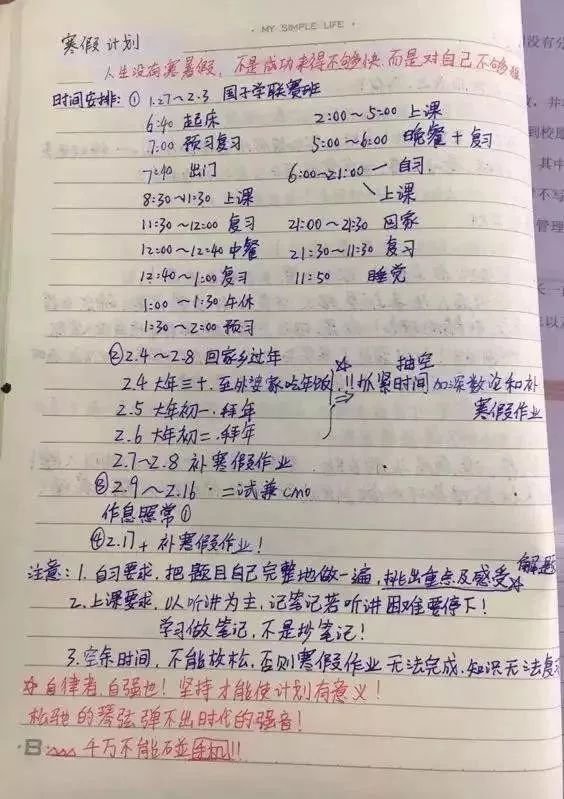 · MY SIMPLE LIFE ·
寒假计划
人生没有寒暑假，不是成功来得不够快，而是对自己不够狠
时间安排：① 1.27～2.3 国子学联赛班
6:40 起床 2:00～5:00 上课
7:00 预习复习 5:00～6:00 晚餐+复习
7:40 出门 6:00～21:00 — 自习
8:30～11:30 上课 上课
11:30～12:00 复习 21:00～21:30 回家
12:00～12:40 中餐 21:30～11:30 复习
12:40～1:00 复习 11:50 睡觉
1:00～1:30 午休
1:30～2:00 预习
② 2.4～2.8 回家乡过年 抽空
2.4 大年三十、至外婆家吃年饭 !! 抓紧时间加深数论和补
2.5 大年初一、拜年 寒假作业
2.6 大年初二、拜年
2.7～2.8 补寒假作业
③ 2.9～2.16 · 二试兼cmo
作息照常①
④ 2.17+ 补寒假作业！
注意：1. 自习要求，把题目自己完整地做一遍，挑出重点及感受 解题
2. 上课要求，以听讲为主，记笔记若听讲困难要停下！
学习做笔记，不是抄笔记！
3. 空余时间，不能放松，否则寒假作业无法完成，知识无法复
☆自律者，自强也！坚持才能使计划有意义！
松驰的琴弦弹不出时代的强音！
千万不能碰手机!!!
没有分
到校
其中
不写
管理